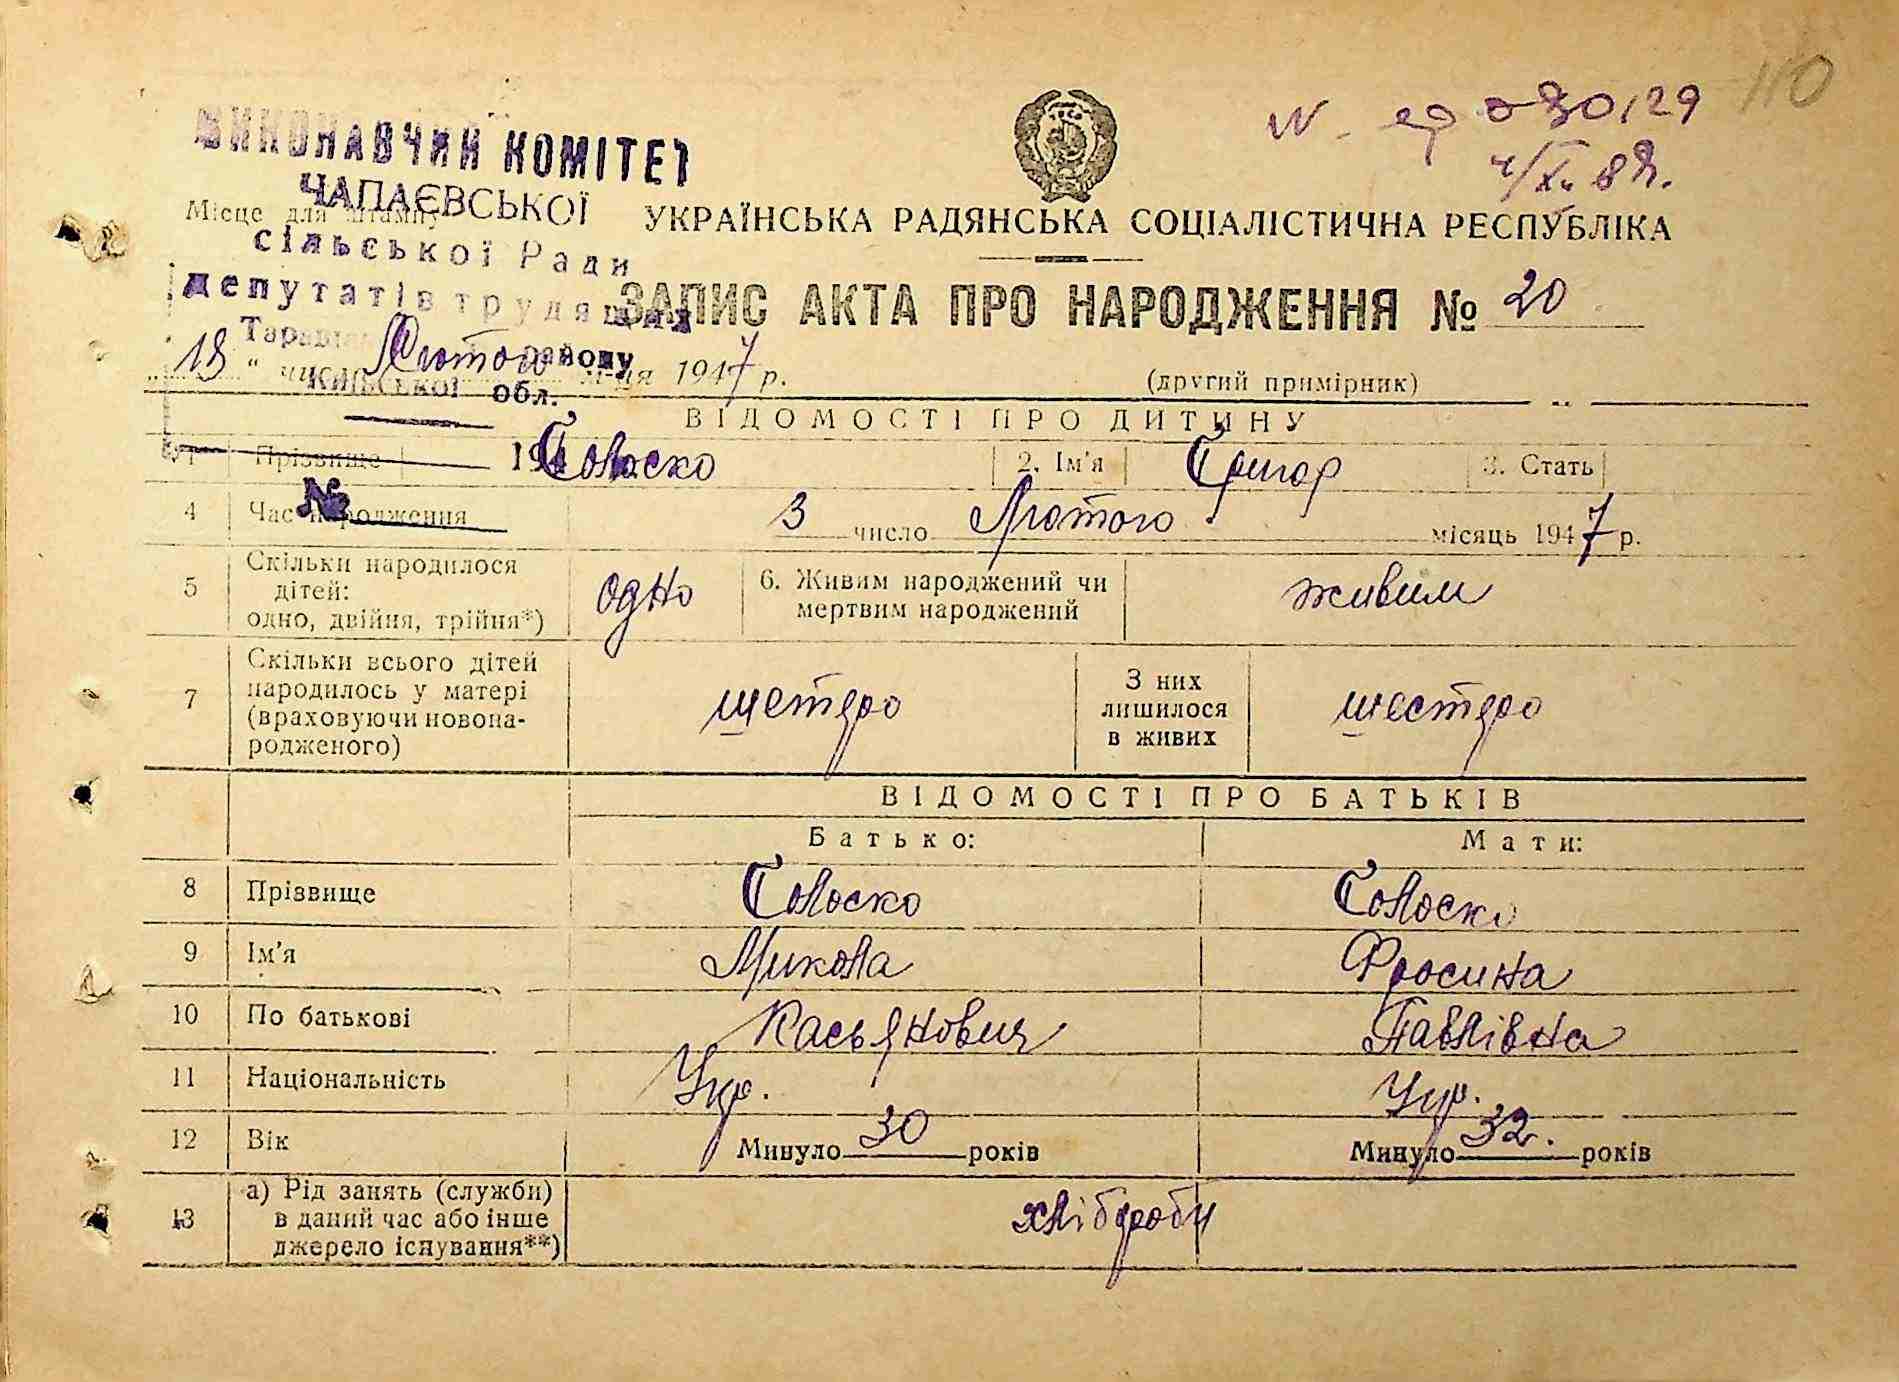 110
ВИКОНАВЧИЙ КОМІТЕТ
ЧАПАЄВСЬКОЇ
сільської Ради
депутатів трудящих
району
КИЇВСЬКОЇ обл.
194
№
Місце для штампу
УКРАЇНСЬКА РАДЯНСЬКА СОЦІАЛІСТИЧНА РЕСПУБЛІКА
ЗАПИС АКТА ПРО НАРОДЖЕННЯ № 20
"18" Лютого м-ця 1947 р.
(другий примірник)
ВІДОМОСТІ ПРО ДИТИНУ
1 Прізвище Голоско 2. Ім'я Григор 3. Стать
4 Час народження 3 число Лютого місяць 1947 р.
5 Скільки народилося дітей: одно, двійня, трійня*) одно 6. Живим народжений чи мертвим народжений живим
7 Скільки всього дітей народилось у матері (враховуючи новонародженого) шестеро З них лишилося в живих шестеро
ВІДОМОСТІ ПРО БАТЬКІВ
Батько: Мати:
8 Прізвище Голоско Голоско
9 Ім'я Микола Фросина
10 По батькові Касьянович Павлівна
11 Національність Укр. Укр.
12 Вік Минуло 30 років Минуло 32. років
13 а) Рід занять (служби) в даний час або інше джерело існування**) хлібороби